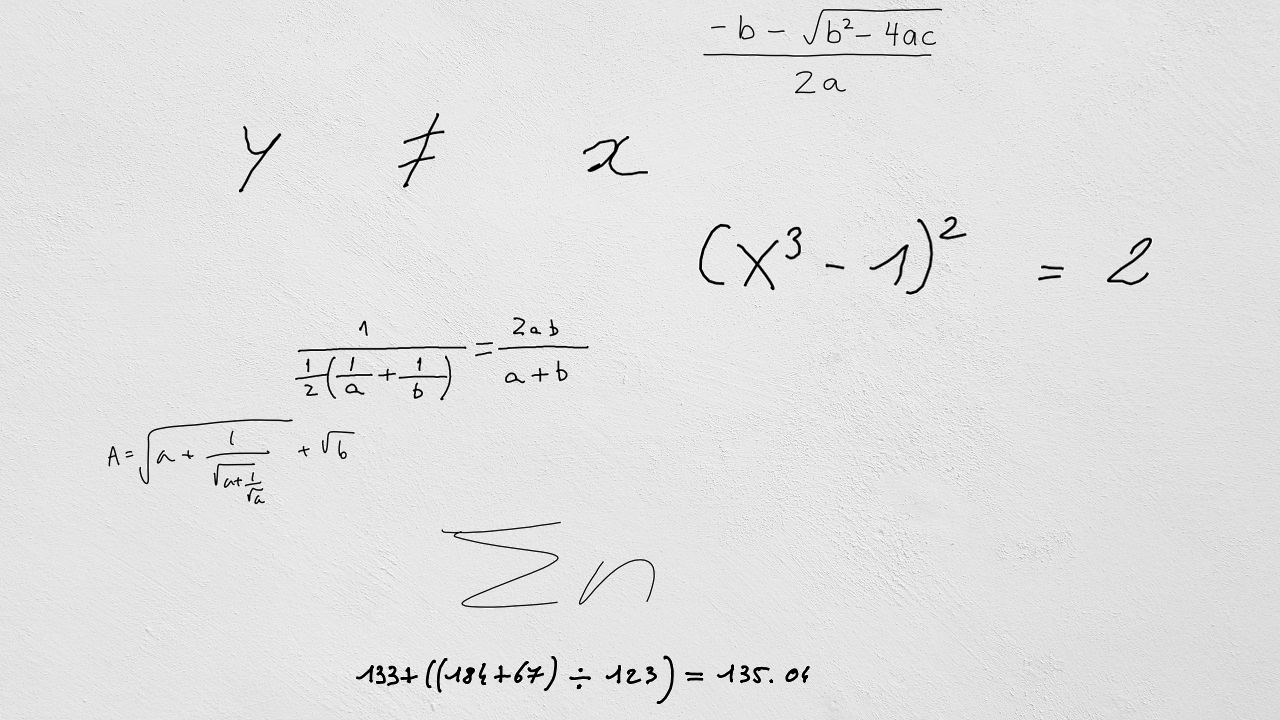 (-b - √(b² - 4ac)) / (2a)
y ≠ x
(x³ - 1)² = 2
1 / (1/2 (1/a + 1/b)) = 2ab / (a + b)
A = √(a + 1/√(a + 1/√a)) + √b
Σn
133+((184+67) ÷ 123) = 135.04